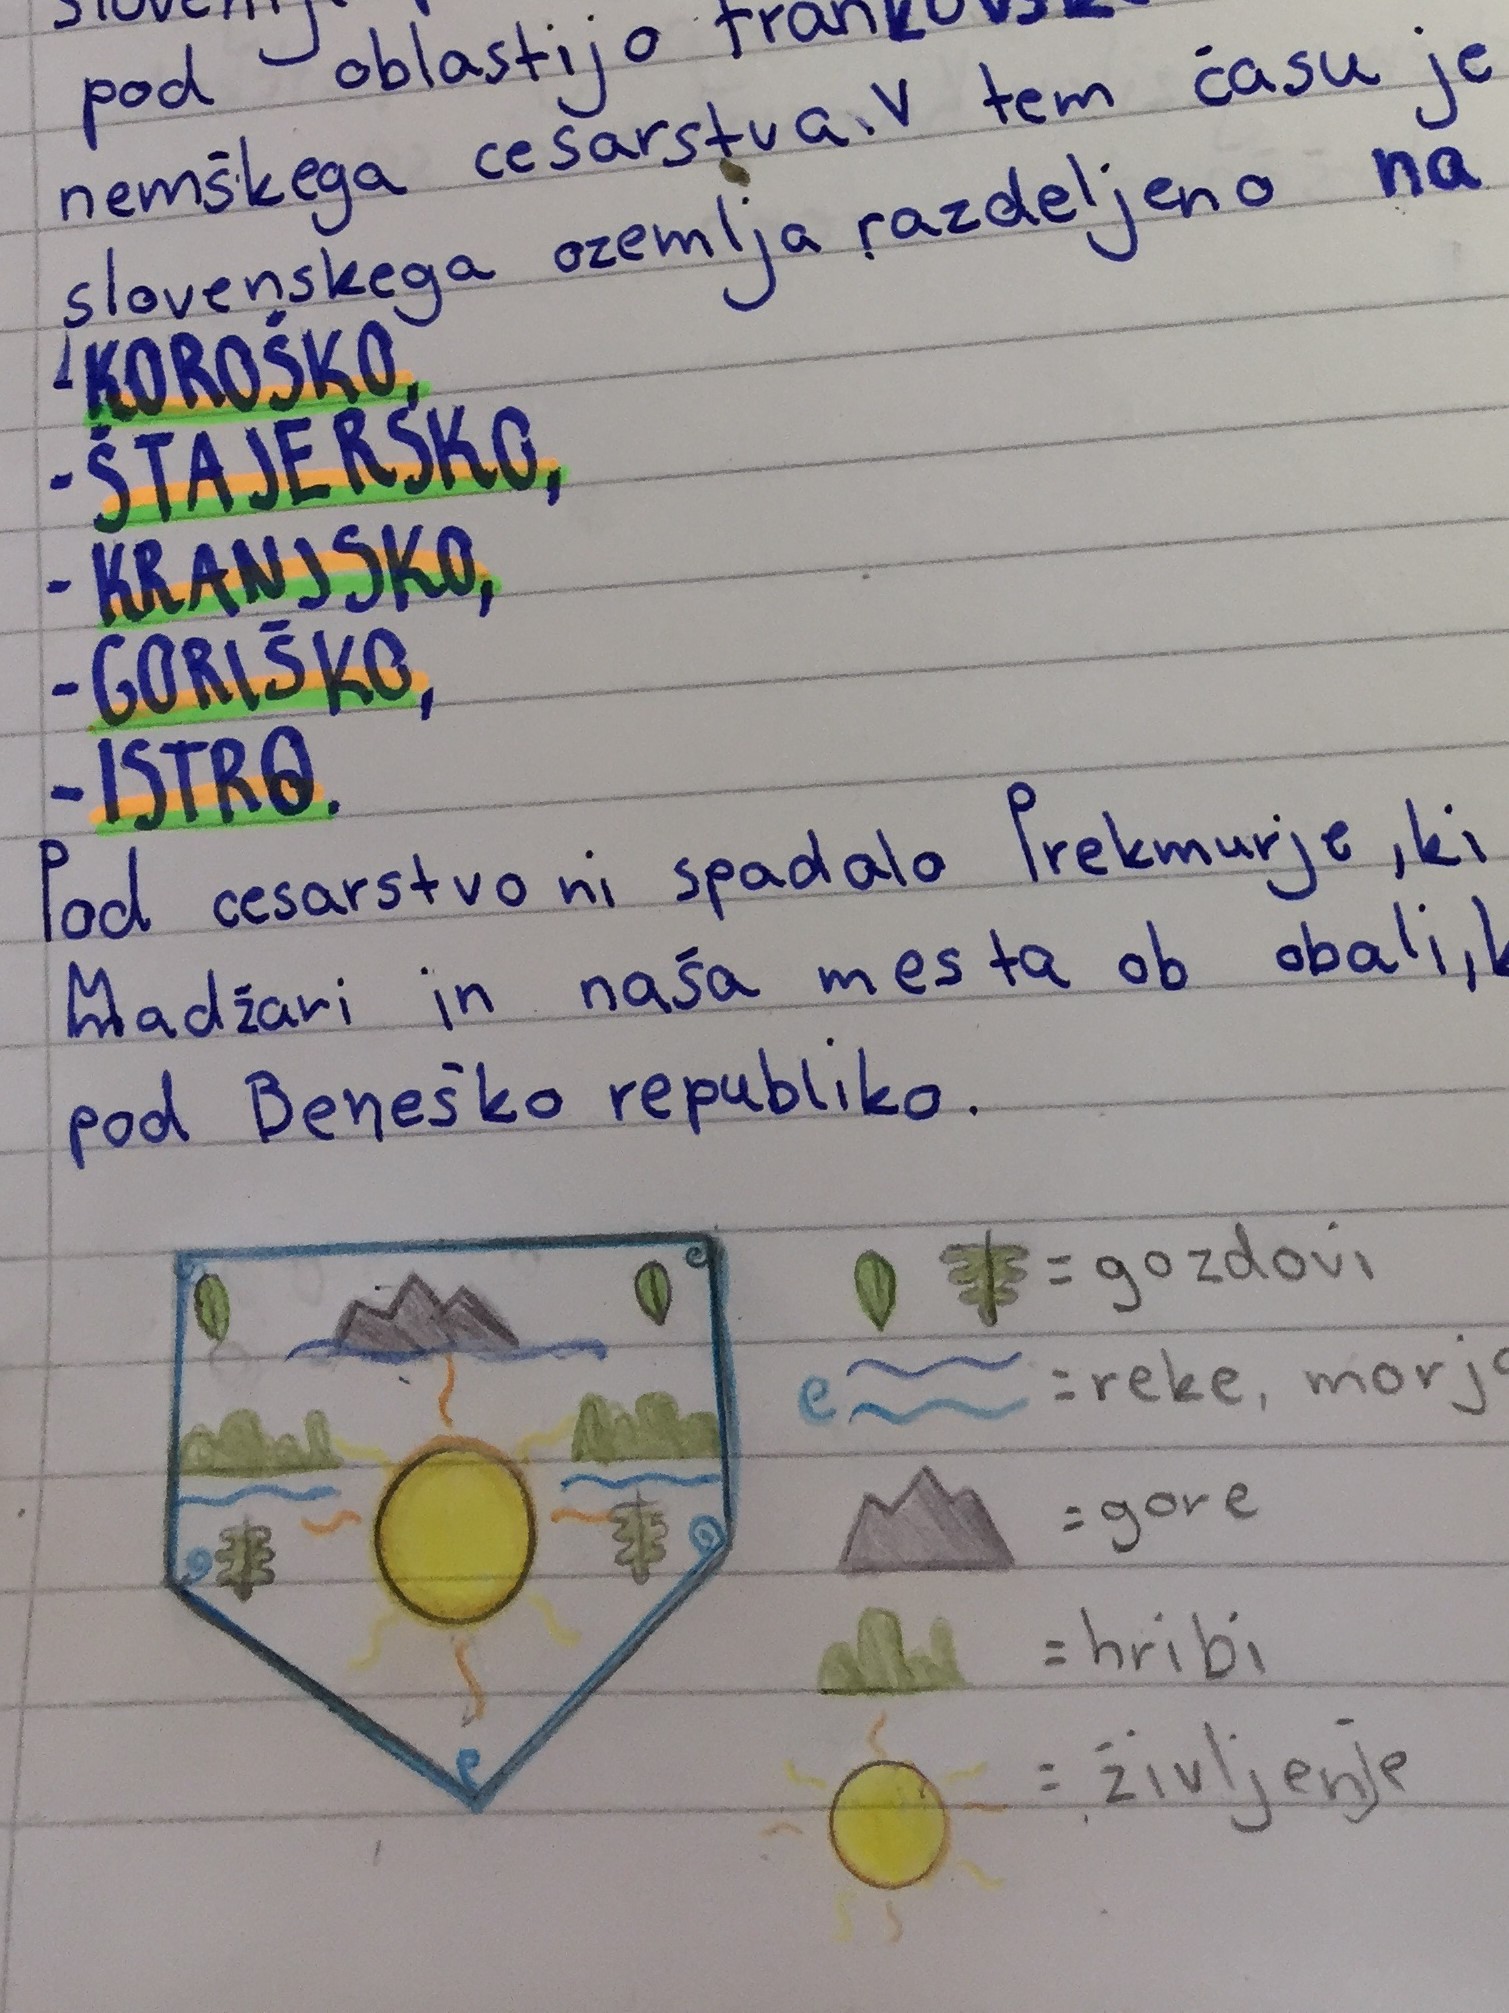 pod oblastijo
nemškega cesarstva. V tem času je
slovenskega ozemlja razdeljeno na
- KOROŠKO,
- ŠTAJERSKO,
- KRANJSKO,
- GORIŠKO,
- ISTRO.
Pod cesarstvo ni spadalo Prekmurje, ki
Madžari in naša mesta ob obali,
pod Beneško republiko.
= gozdovi
= reke, morje
= gore
= hribi
= življenje